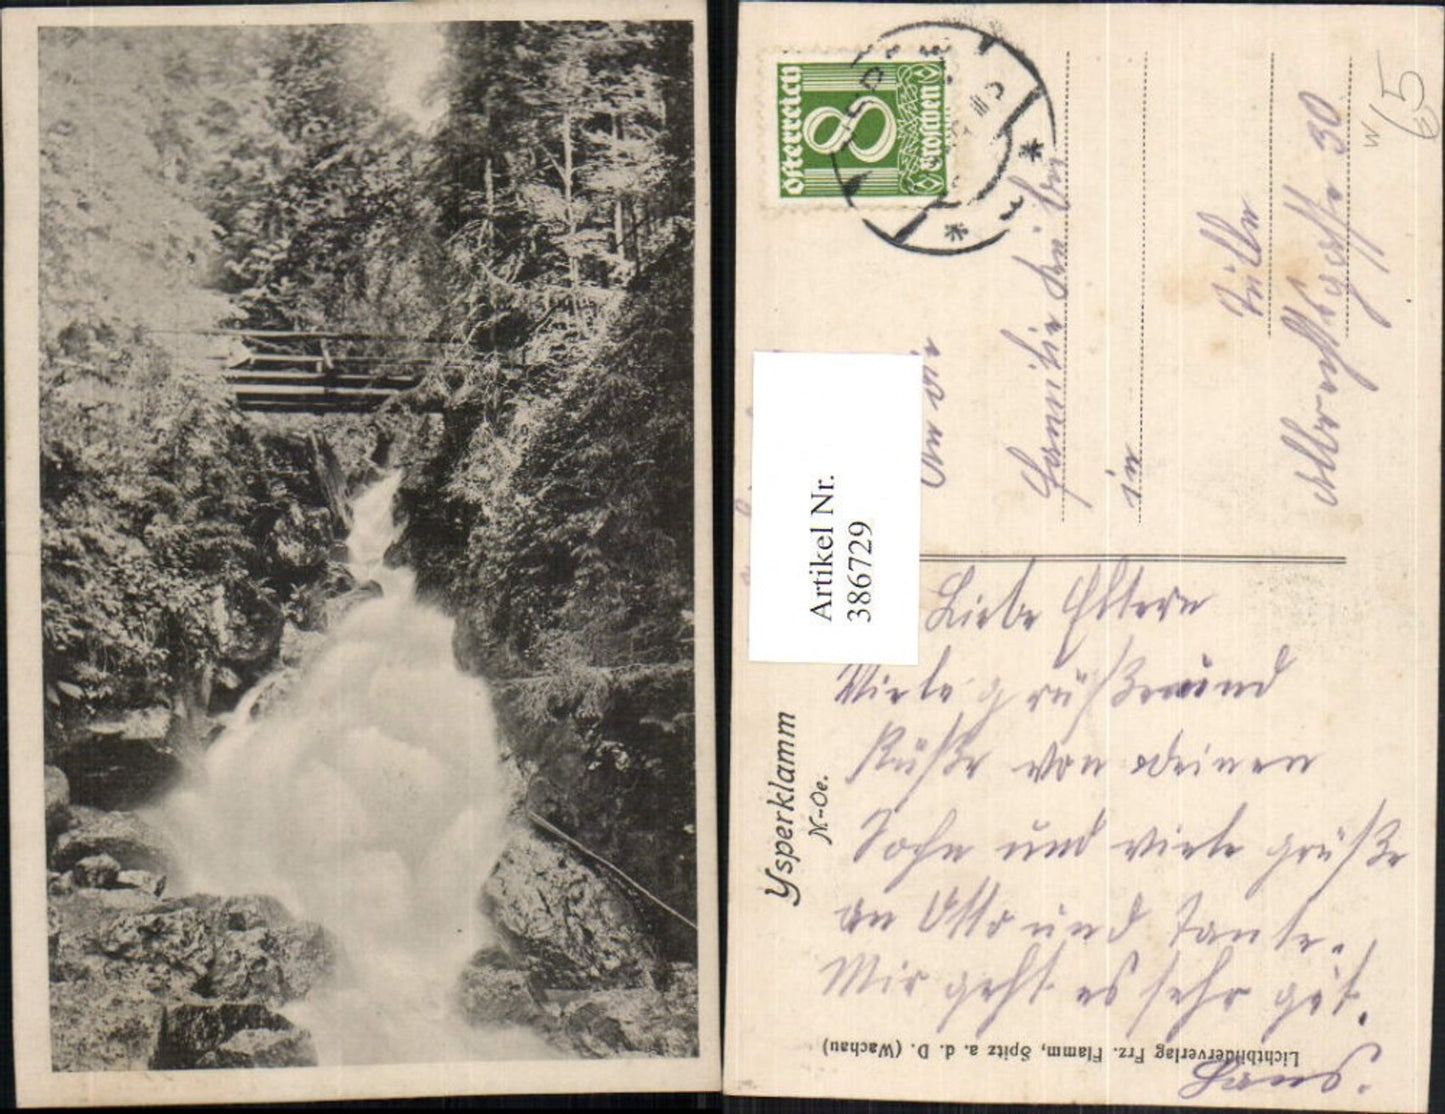 Österreich
8
Groschen
An die
Familie
in
Tulln
Albrechtsgasse 30
W
65
Artikel Nr.
386729
Liebe Eltern
Viele grüße und
Küße von Deinen
Sohn und viele grüße
an Otto und Tante.
Mir geht es sehr gut.
Hans.
Ysperklamm
N-Oe.
Lichtbilderverlag Frz. Flamm, Spitz a. d. D. (Wachau)